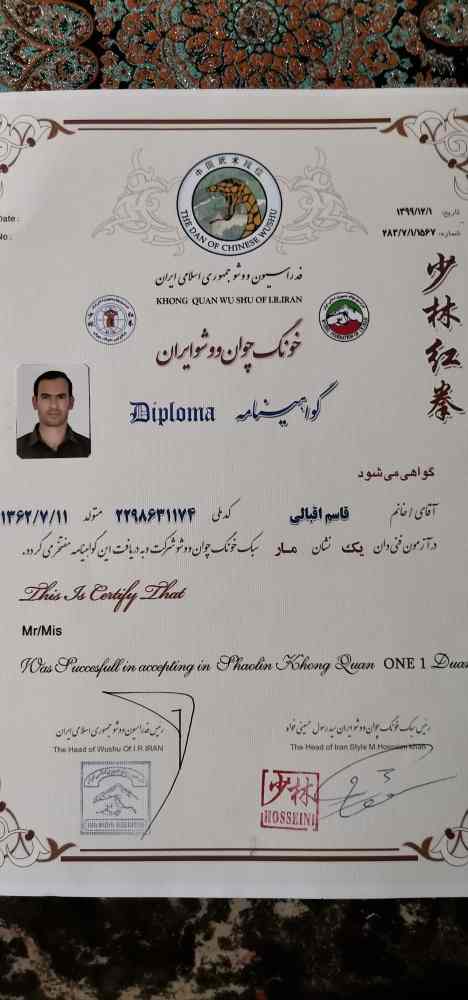 中国武术段位
THE DAN OF CHINESE WUSHU
Date :
No :
تاریخ: ۱۳۹۹/۱۲/۱
شماره: ۲۸۳/۷/۱/۱۵۶۷
فدراسیون ووشو جمهوری اسلامی ایران
KHONG QUAN WU SHU OF I.R.IRAN
خونگ چوان ووشو ایران
少林红拳
Diploma گواهینامه
گواهی می شود
آقای / خانم قاسم اقبالی کد ملی ۲۲۹۸۶۳۱۱۷۴ متولد ۱۳۶۲/۷/۱۱
در آزمون فنی دان یک نشان مار سبک خونگ چوان ووشو شرکت و به دریافت این گواهینامه مفتخر می گردد.
This Is Certify That
Mr/Mis
Was Succesfull in accepting in Shaolin Khong Quan ONE 1 Duan
رئیس فدراسیون ووشو جمهوری اسلامی ایران
The Head of Wushu Of I.R.IRAN
رئیس سبک خونگ چوان ووشو ایران سید رسول حسینی خواه
The Head of Iran Style M.Hosseini khah
少林
HOSSEINI